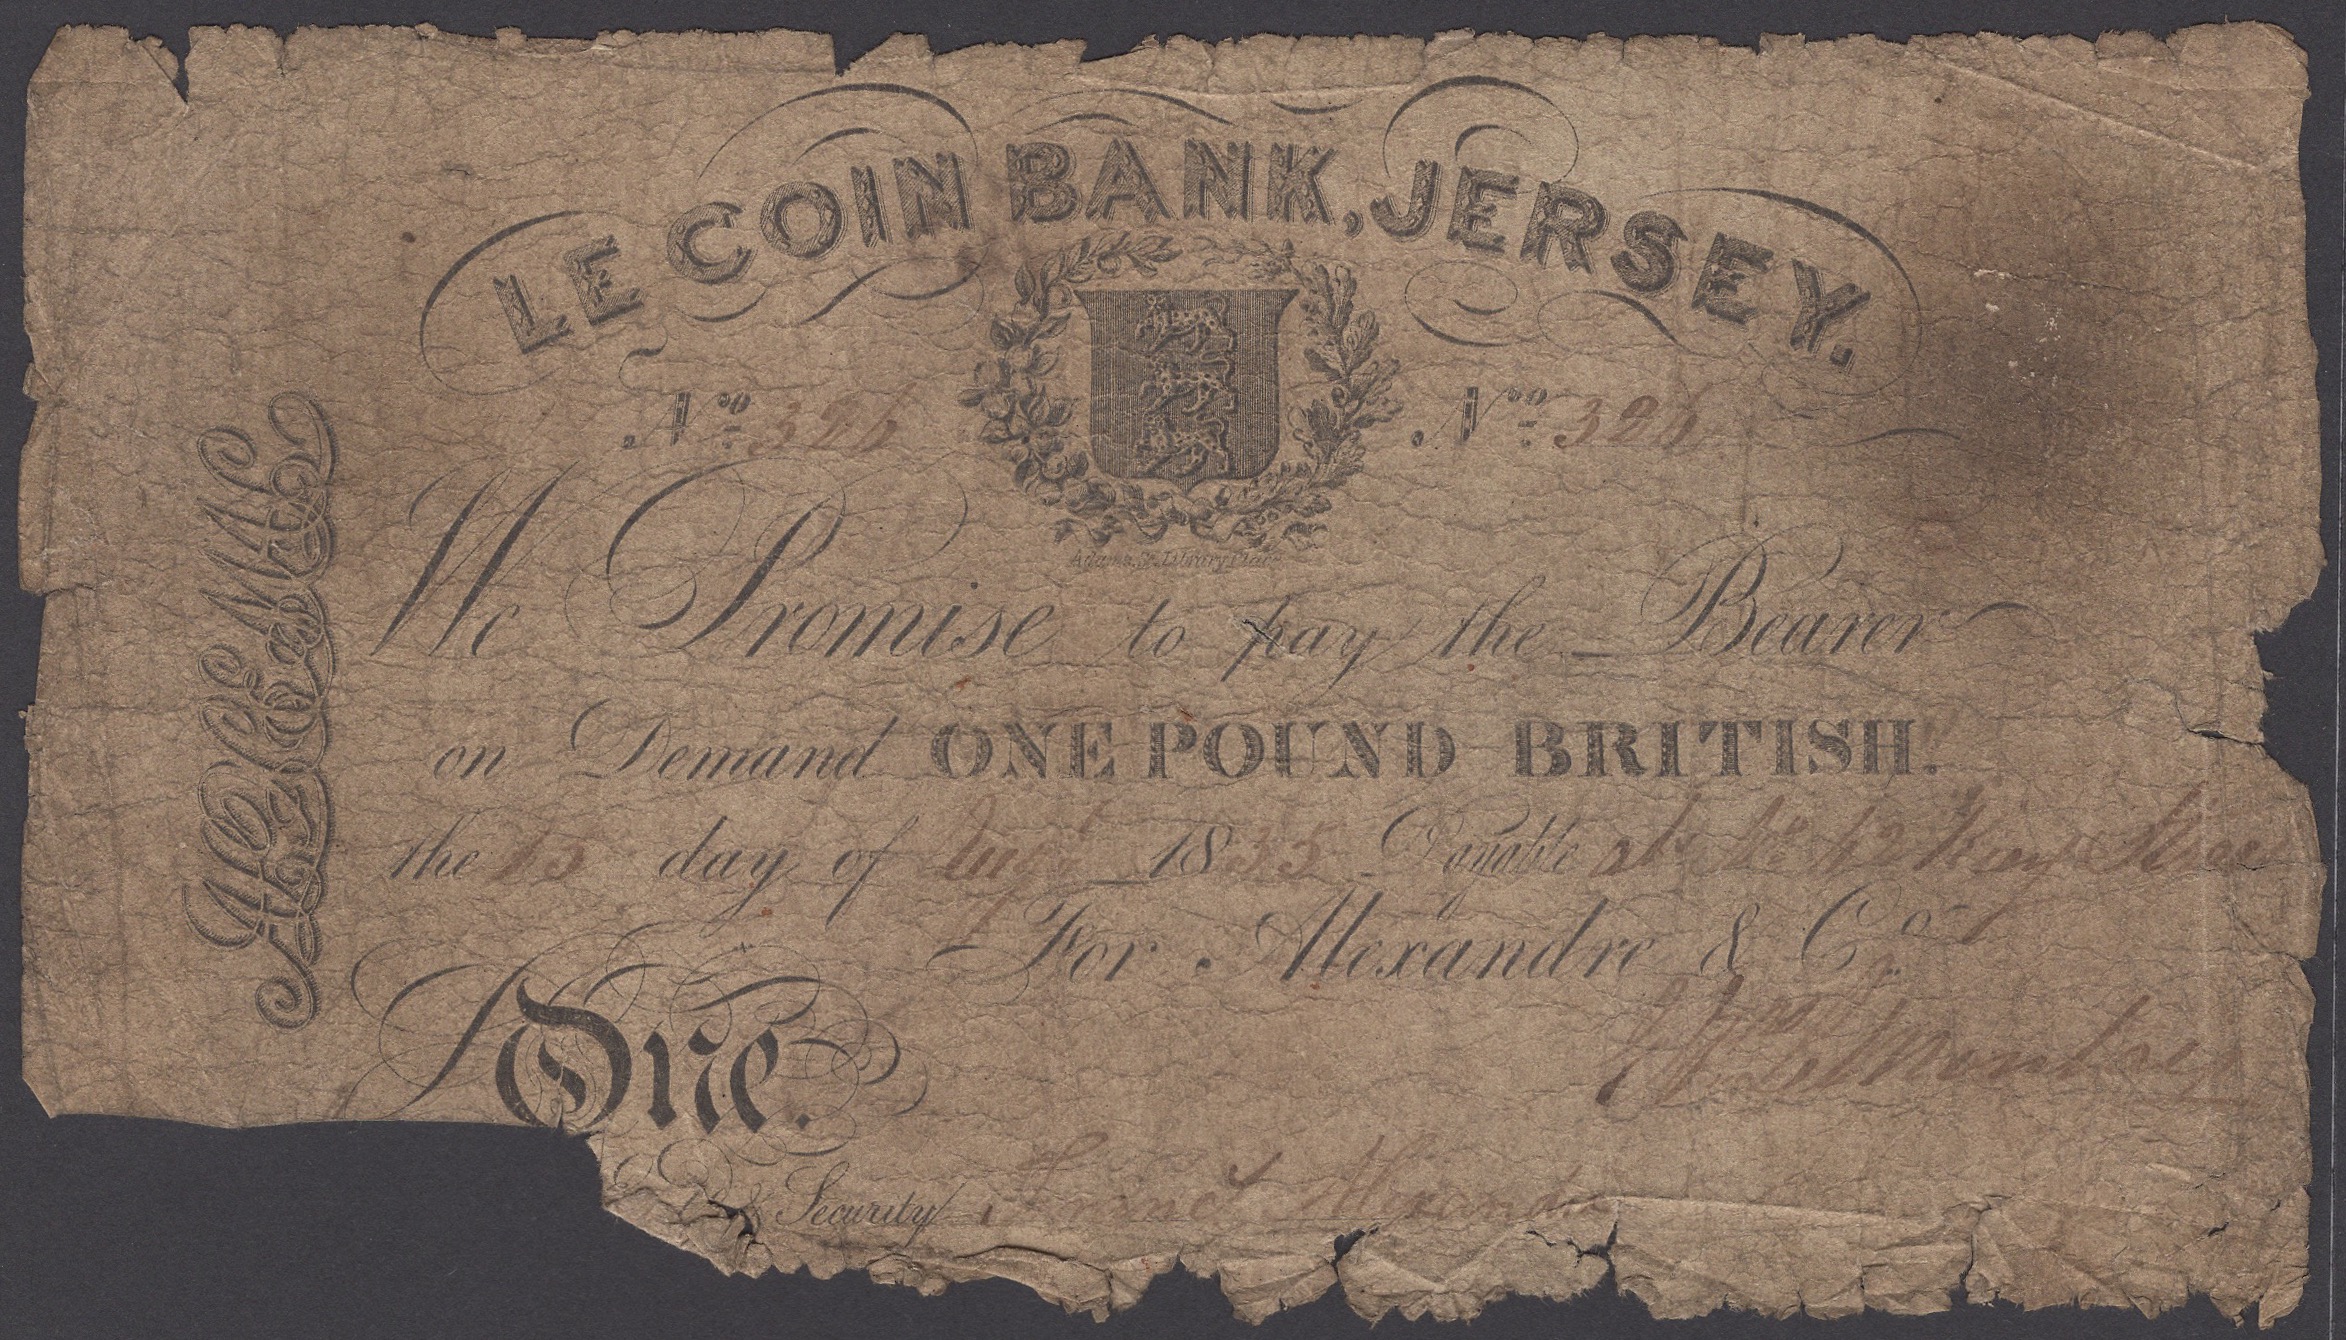 LE COIN BANK, JERSEY.
No. 326 No. 326
Adams, Sc. Library Place
We Promise to pay the Bearer
on Demand ONE POUND BRITISH.
the 15 day of Augt 1835 Payable at No 62 King Street
For Alexandre & Co.
One.
& Security Alexandre